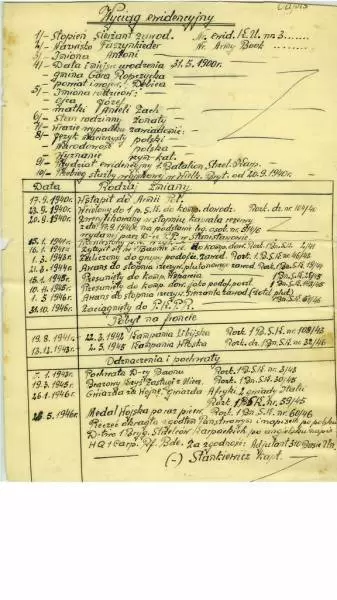 Odpis
Wyciąg ewidencyjny
1/- Stopień Sierżant zawod. Nr. ewid. I.E.U. nr. 3......
2/- Nazwisko Nr. Army Book......
3/- Imiona Antoni
4/- Data i miejsce urodzenia 31.5.1900r.
- gmina Góra Ropczycka
- powiat i wojew. Dębica
5/- Imiona rodziców:
- ojca Józef
- matki Anieli Zach -
6/- Stan rodzinny żonaty
7/- W razie wypadku zawiadomić: -
8/- Język ojczysty polski
- Narodowość polska
- Wyznanie rzym-kat.
9/- Oddział ewidencyjny 1. Batalion Strzel. Karp. -
10/- Przebieg służby wojskowej w Wielk. Bryt. od 20.9.1940r.
Data Rodzaj Zmiany
17.9.1940r. Wstąpił do Armii Pol.
23.9.1940r. Wcielony do 1 p.S.K. do komp. dowodz. Rozk. dz. nr. 104/40
20.9.1940r. Zweryfikowany w stopniu kaprala rezerwy
16.1.1941r. do komp. dow. Rozk. Bn. S.K. 2/41
1.3.1943r. Zaliczony do grupy podofic. zawod. Rozk. 1 Bn. S.K. 46/43
21.3.1944r. Awans do stopnia plutonowy zawod. Rozk. 1 Bn. S.K. 19/44
15.4.1945r. Przesunięty do komp. Wsparcia
10.4.1945r. Przesunięty do komp. dow.
1.3.1946r. Awans do stopnia sierżanta zawod.
31.10.1946r. Zaciągnięty do P.K.P.R.
Pobyt na froncie
19.8.1941r. 12.3.1942 Kampania Libijska Rozk. 1 Bn. S.K. nr. 108/43
13.12.1943r. 2.5.1945 Kampania Włoska Rozk. dz. 1 Bn. S.K. nr. 32/46
Odznaczenia i pochwały
5.1.1943r. Pochwała D-cy Baonu Rozk. 1 Bn. S.K. nr. 3/43
19.3.1945r. Brązowy Krzyż Zasługi z Mieczami Rozk. 1 Bn. S.K. nr. 30/45
26.1.1946r. Gwiazda za Wojnę, Gwiazda Afryki, Gwiazda Italii
Rozk. 1 Bn. S.K. nr. 59/45
28.5.1946r. Medal Wojska po raz pierw. Rozk. 1 Bn. S.K. nr. 60/46
Pieczęć okrągła z godłem Państwowym i napisem po polsku
D-two 1 Bryg. Strzelców Karpackich, po angielsku napis
HQ 1 Carp. Rf. Bde. Za zgodność: Adjutant
(-) Stankiewicz Kapt.